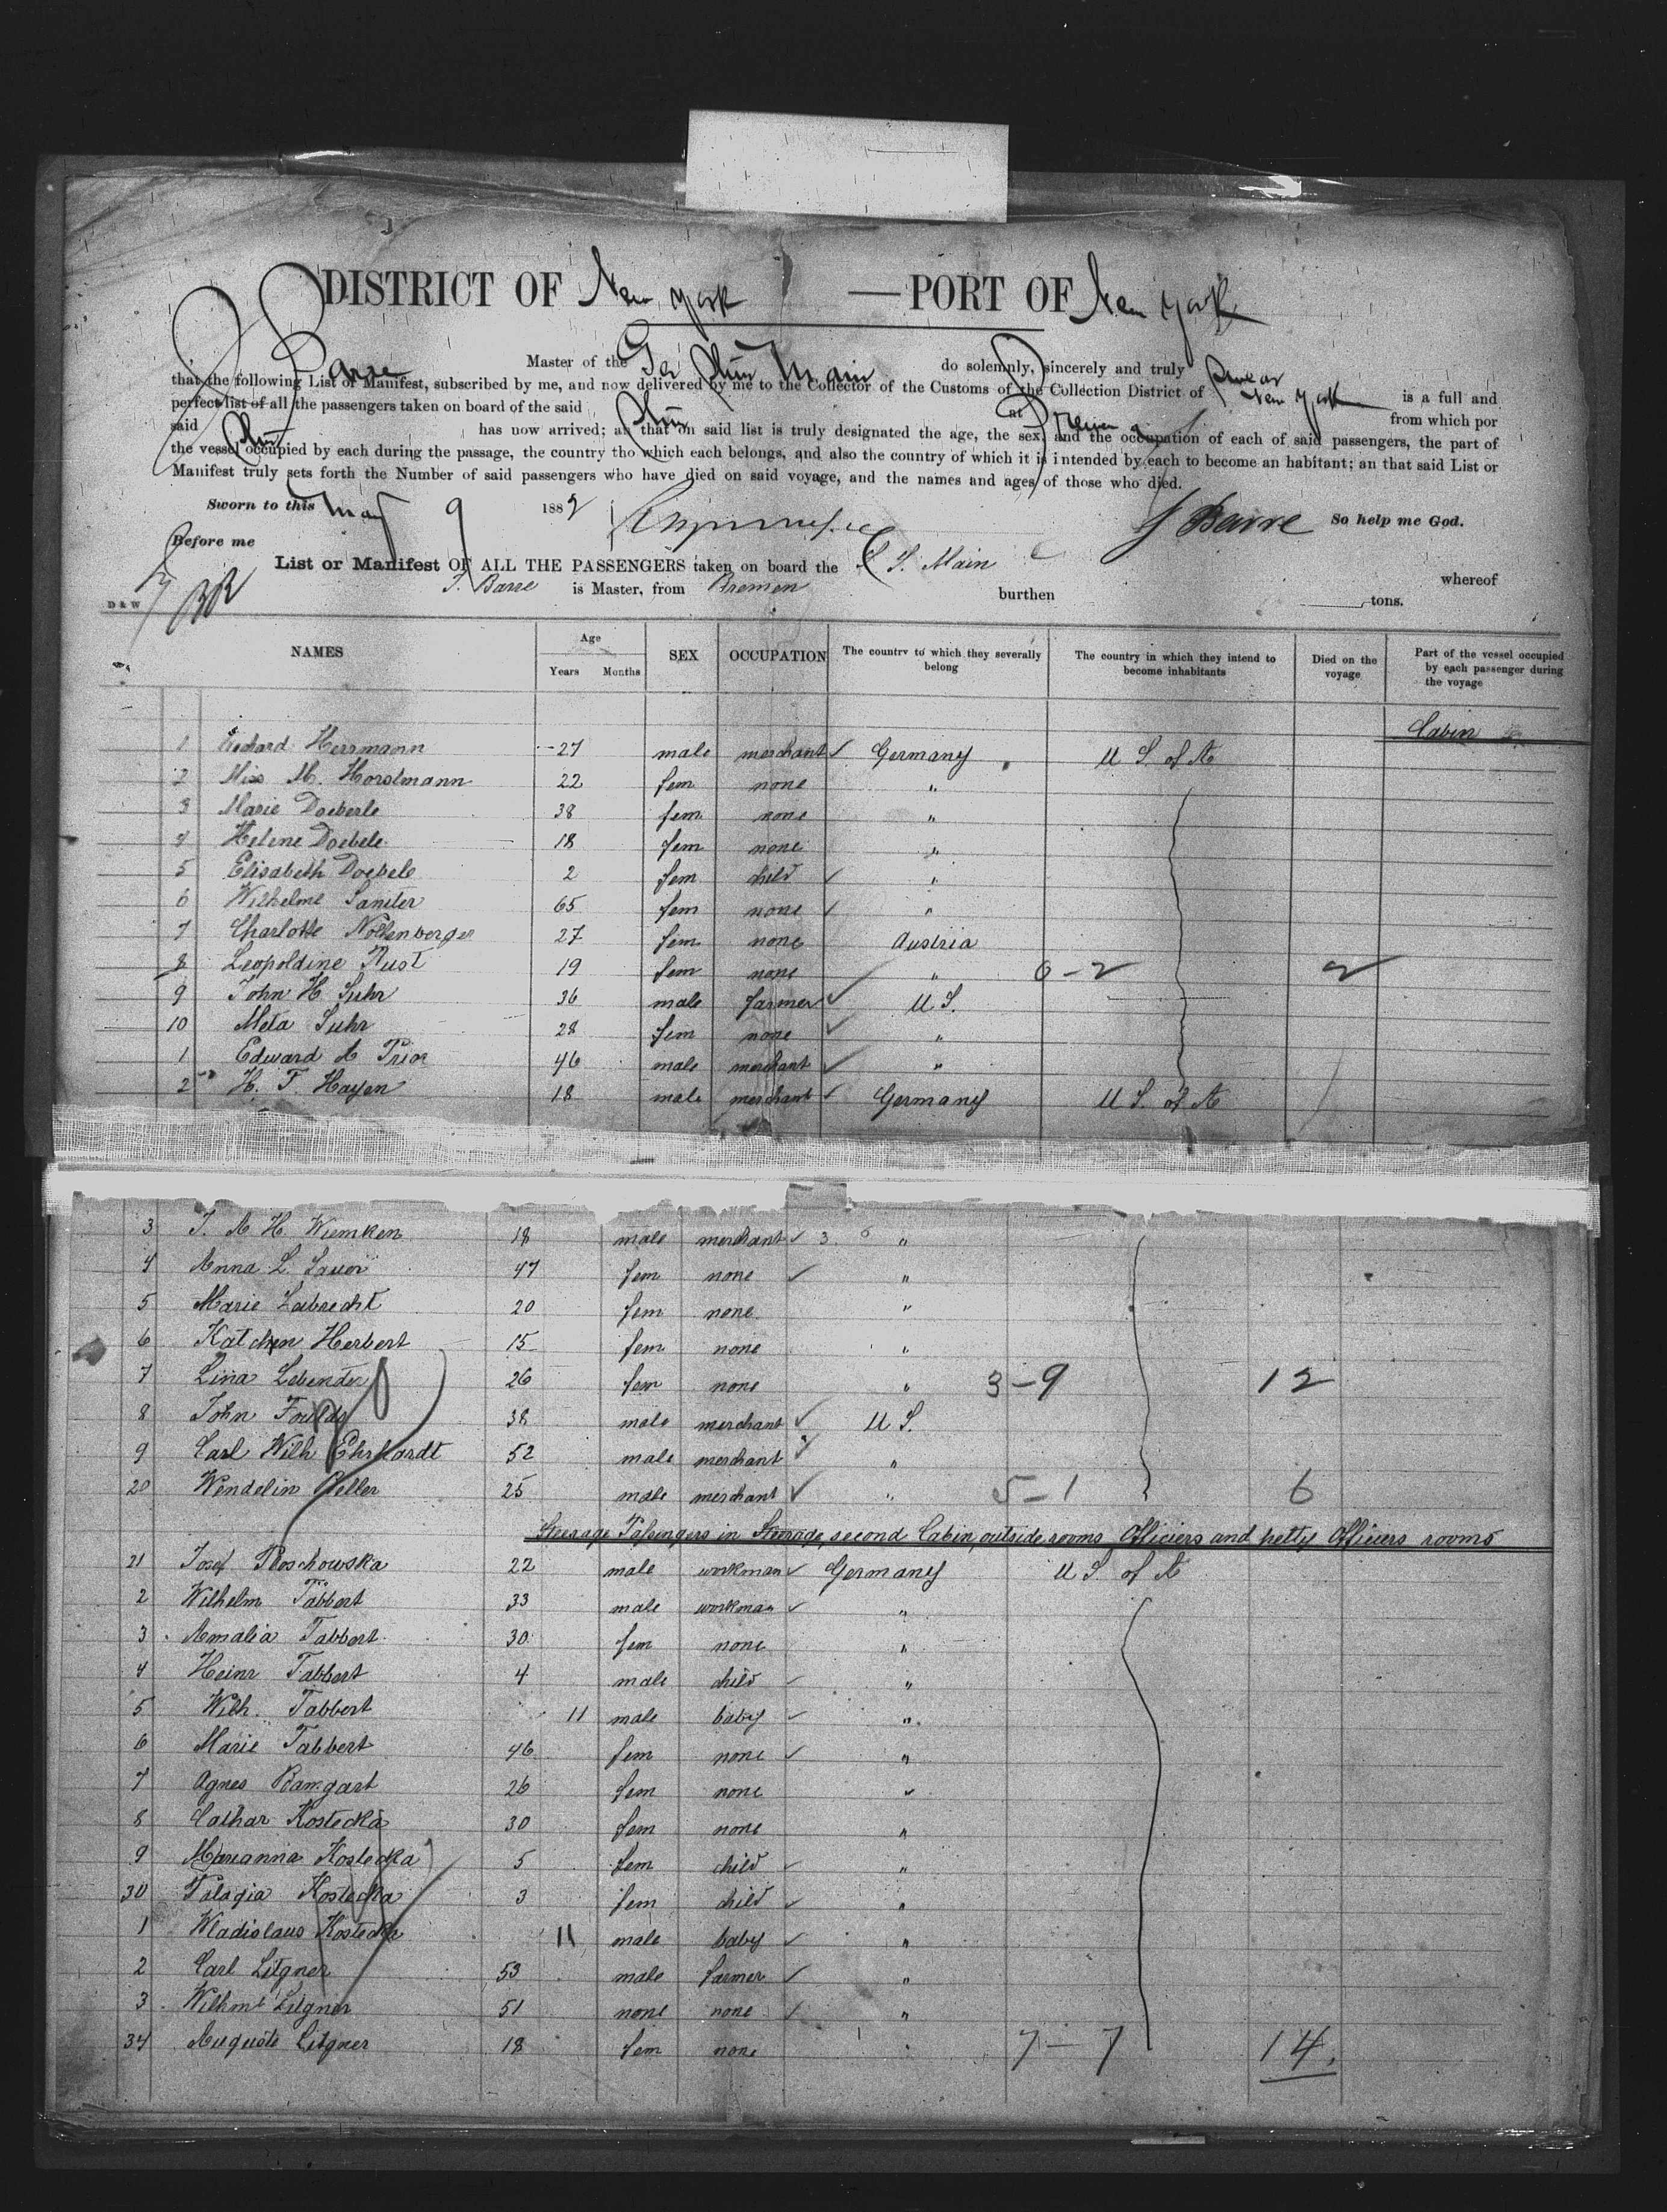 DISTRICT OF New York — PORT OF New York
J Barre Master of the Ger Str Main do solemnly, sincerely and truly swear
that the following List or Manifest, subscribed by me, and now delivered by me to the Collector of the Customs of the Collection District of New York is a full and
perfect list of all the passengers taken on board of the said Str at Bremen from which por
said Str has now arrived; an that on said list is truly designated the age, the sex, and the occupation of each of said passengers, the part of
the vessel occupied by each during the passage, the country tho which each belongs, and also the country of which it is intended by each to become an habitant; an that said List or
Manifest truly sets forth the Number of said passengers who have died on said voyage, and the names and ages of those who died.
Sworn to this May 9 1882 J Barre So help me God.
Before me
List or Manifest OF ALL THE PASSENGERS taken on board the S. S. Main whereof
J. Barre is Master, from Bremen burthen tons.
D & W
NAMES Age Years Months SEX OCCUPATION The country to which they severally belong The country in which they intend to become inhabitants Died on the voyage Part of the vessel occupied by each passenger during the voyage
Cabin
1 Richard Herrmann 27 male merchant Germany U S of A
2 Miss M. Horstmann 22 fem none "
3 Marie Doeberle 38 fem. none "
4 Helene Doebele 18 fem none "
5 Elisabeth Doebele 2 fem child "
6 Wilhelme Saniter 65 fem none "
7 Charlotte 27 fem none Austria
8 Leopoldine Rust 19 fem none " 0-2 2
9 John H Suhr 36 male farmer U S.
10 Meta Suhr 28 fem none "
1 Edward A Prior 46 male merchant "
2 H. F. Hayen 18 male merchant Germany U S. of A
3 J. A H Wiemken 18 male merchant "
4 Anna L. Sauer 47 fem none "
5 Marie Labrecht 20 fem none. "
6 Katchen Herbert 15 fem none "
7 Lina 26 fem none " 3-9 12
8 John Foulds 38 male merchant U S.
9 Carl Wilh Ehrhardt 52 male merchant "
20 Wendelin Geller 25 male merchant " 5-1 6
Steerage Passengers in Steerage, second Cabin, outside rooms Officiers and petty Officiers rooms
21 Josef Ploschowska 22 male workman Germany U S. of A
2 Wilhelm Tabbert 33 male workman "
3 Amalia Tabbert 30 fem none "
4 Heinr Tabbert 4 male child "
5 Wilh. Tabbert 11 male baby "
6 Marie Tabbert 46 fem none "
7 Agnes Bamgart 26 fem none "
8 Cathar Kostecka 30 fem none "
9 Marianna Kostecka 5 fem child "
30 Palagia Kostecka 3 fem child "
1 Wladislaus Kostecka 11 male baby "
2 Carl Litgner 53 male farmer "
3 Wilhmt Litgner 51 none none "
34 Auguste Litgner 18 fem none " 7-7 14.